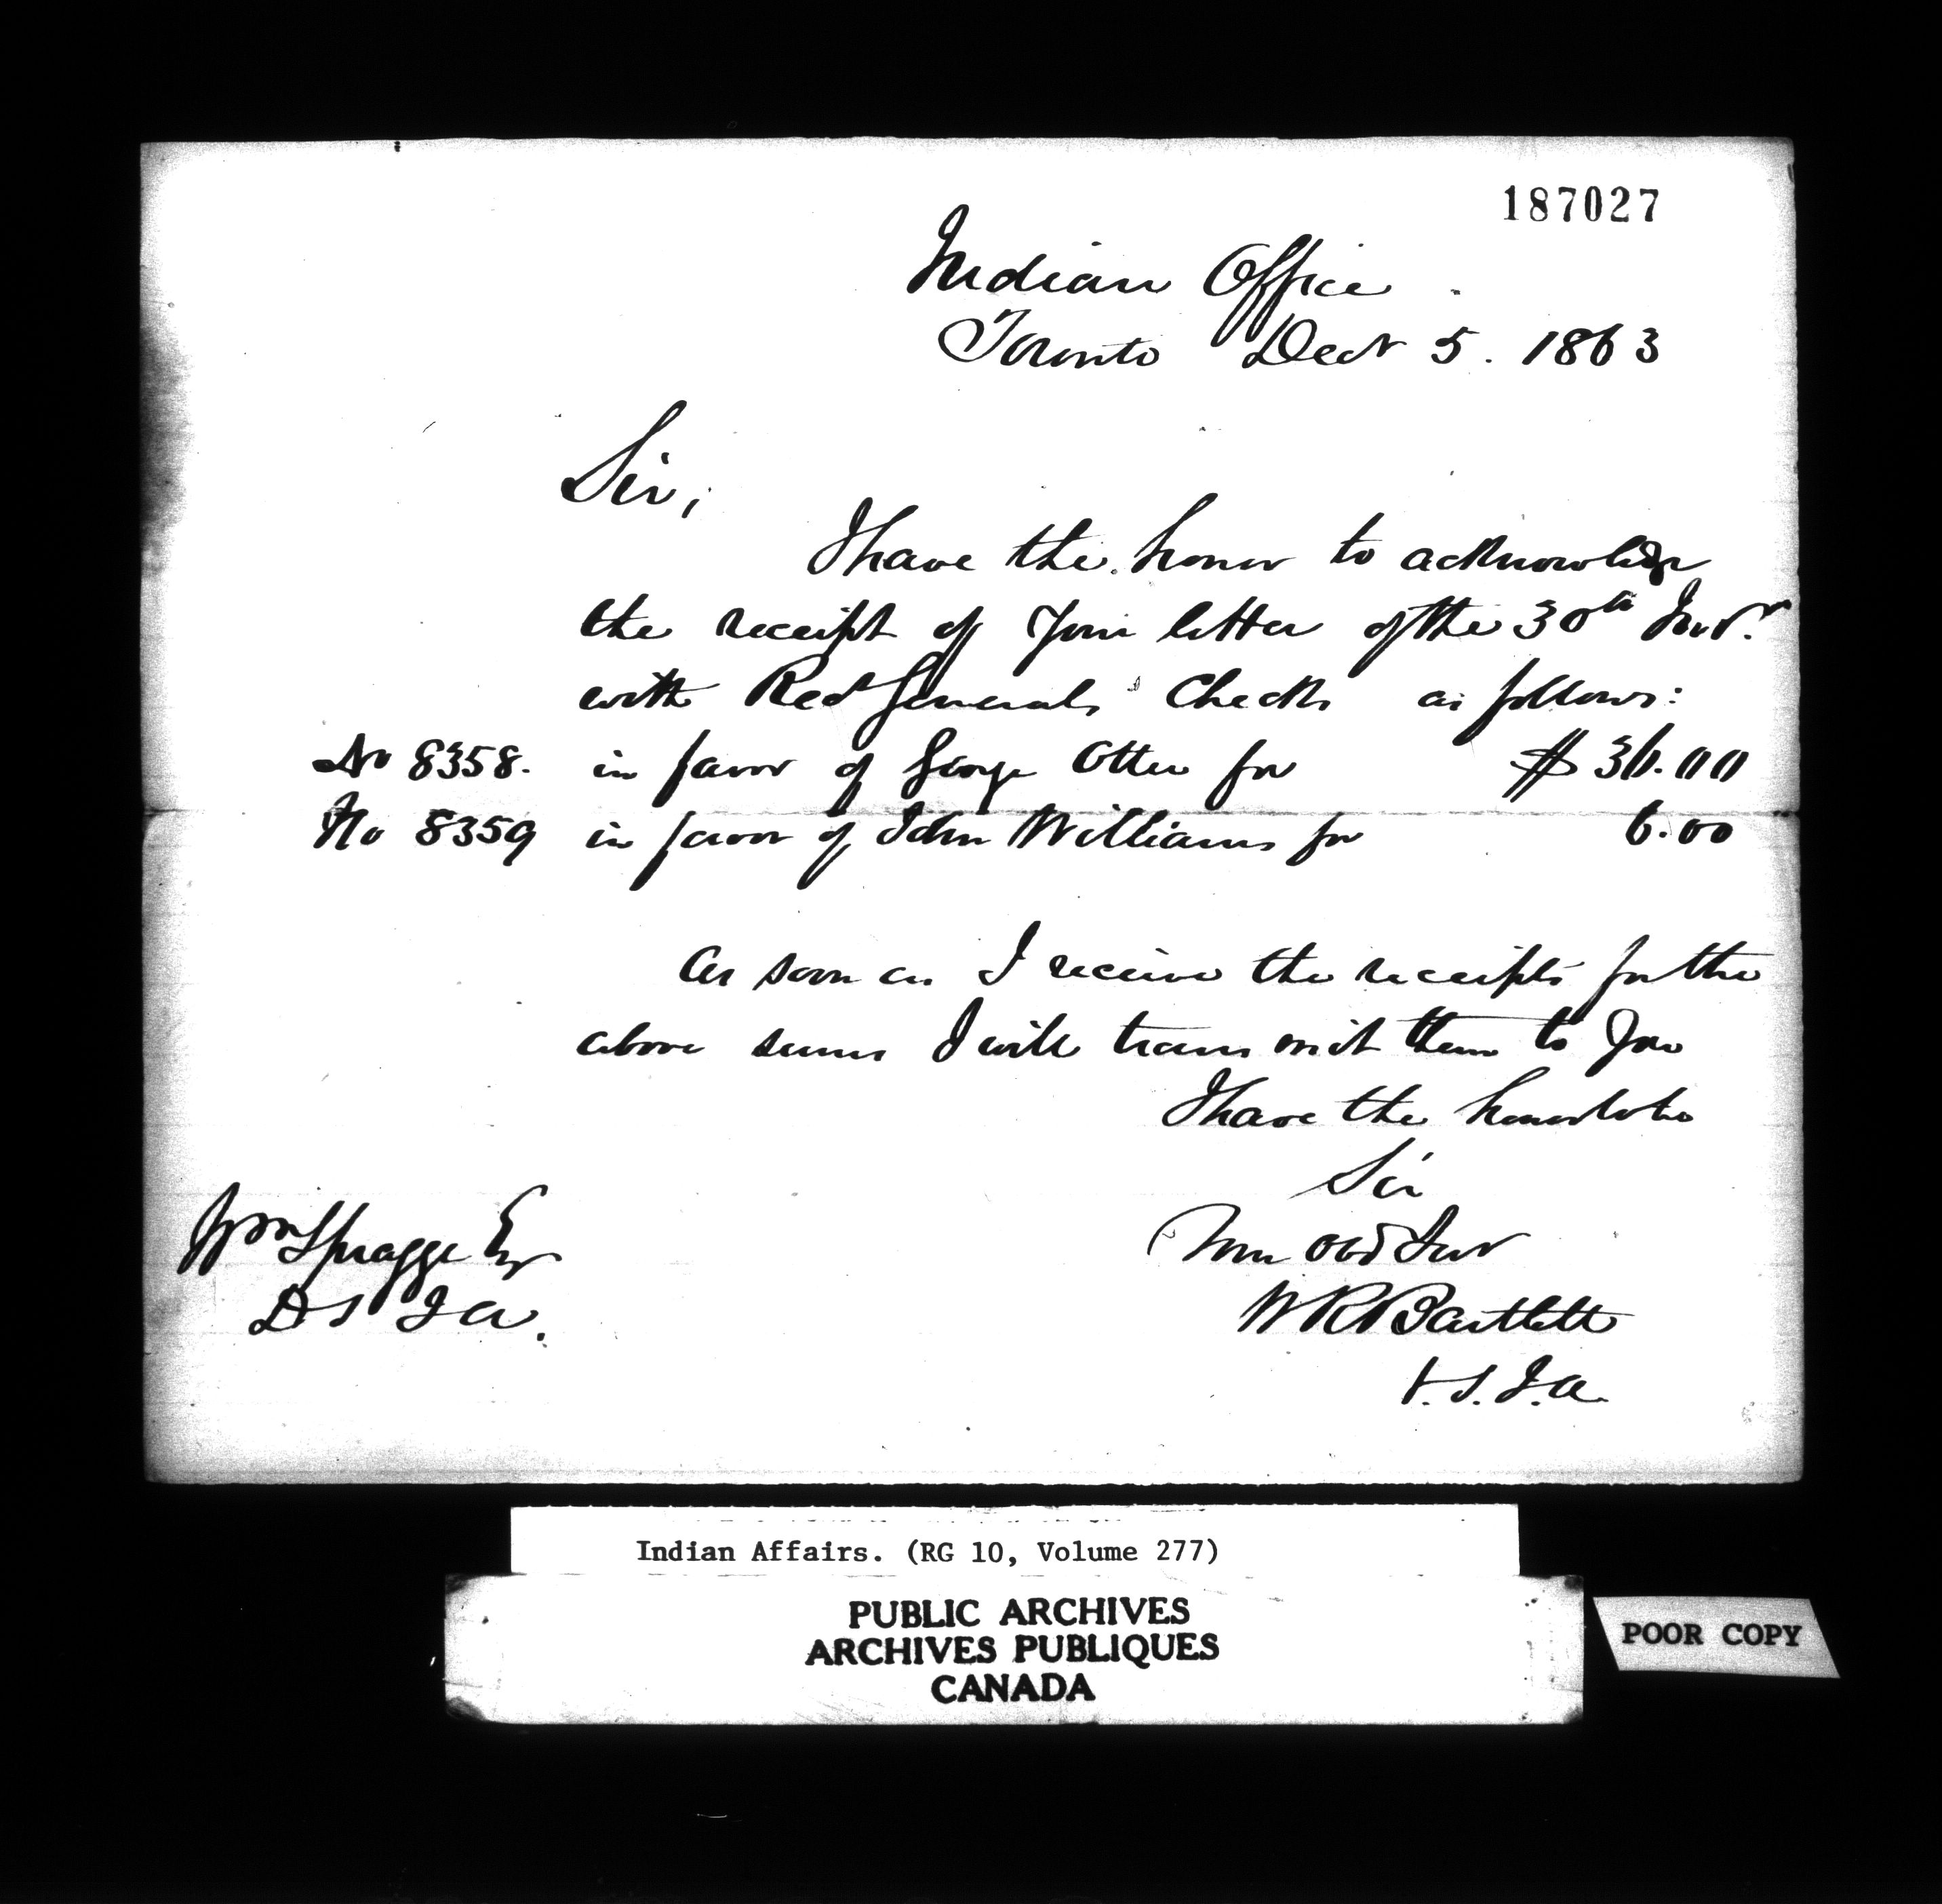 187027
Indian Office
Toronto Decr 5. 1863
Sir,
I have the honor to acknowledge
the receipt of your letter of the 30th Novr.
with Rec Generals Checks as follows:
No 8358. in favor of George Otter for $ 36.00
No 8359 in favor of John Williams for 6.00
As soon as I receive the receipts for the
above sums I will transmit them to you
I have the honor to be
Sir
Your obd Servt
W R Bartlett
V.S.I.A.
Wm Spragge Esq
D S I A.
Indian Affairs. (RG 10, Volume 277)
PUBLIC ARCHIVES
ARCHIVES PUBLIQUES
CANADA
POOR COPY